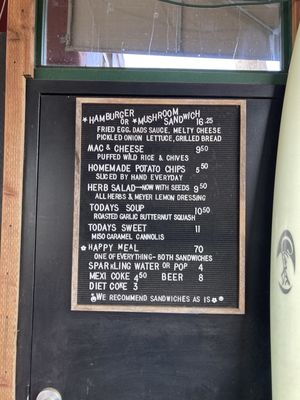 * HAMBURGER OR * MUSHROOM SANDWICH 16.25
FRIED EGG, DADS SAUCE, MELTY CHEESE
PICKLED ONION LETTUCE, GRILLED BREAD
MAC & CHEESE 9.50
PUFFED WILD RICE & CHIVES
HOMEMADE POTATO CHIPS 5.50
SLICED BY HAND EVERYDAY
HERB SALAD -NOW WITH SEEDS 9.50
ALL HERBS & MEYER LEMON DRESSING
TODAYS SOUP 10.50
ROASTED GARLIC BUTTERNUT SQUASH
TODAYS SWEET 11
MISO CARAMEL CANNOLIS
* HAPPY MEAL 70
ONE OF EVERYTHING - BOTH SANDWICHES
SPARKLING WATER OR POP 4
MEXI COKE 4.50 BEER 8
DIET COKE 3
WE RECOMMEND SANDWICHES AS IS